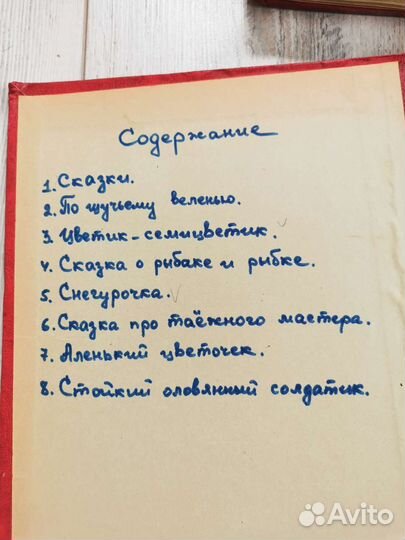 Содержание
1. Сказки.
2. По щучьему веленью.
3. Цветик-семицветик.
4. Сказка о рыбаке и рыбке.
5. Снегурочка.
6. Сказка про таёжного мастера.
7. Аленький цветочек.
8. Стойкий оловянный солдатик.
Avito